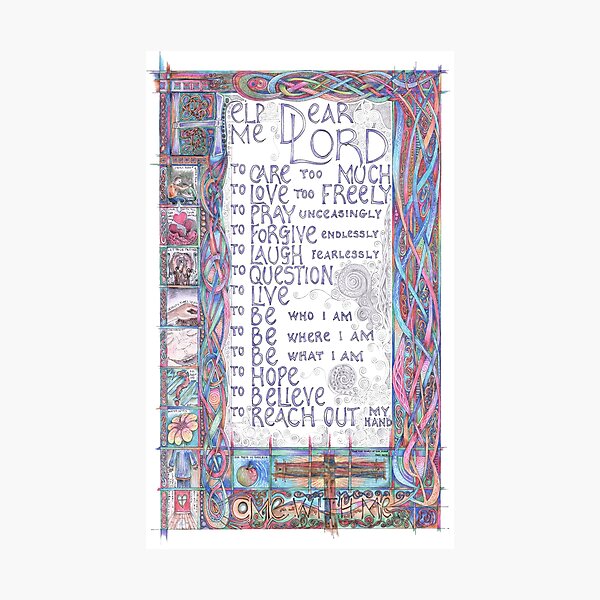 HELP DEAR
ME LORD
TO CARE TOO MUCH
TO LOVE TOO FREELY
TO PRAY UNCEASINGLY
TO FORGIVE ENDLESSLY
TO LAUGH FEARLESSLY
TO QUESTION
TO LIVE
TO BE WHO I AM
TO BE WHERE I AM
TO BE WHAT I AM
TO HOPE
TO BELIEVE
TO REACH OUT MY HAND
COME WITH ME